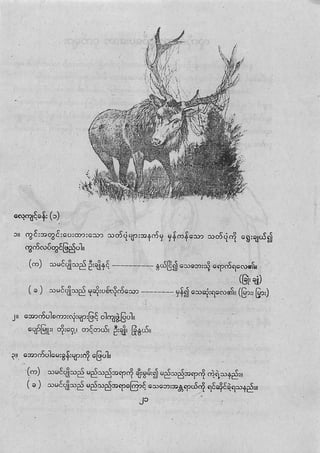 လေ့ကျင့်ခန်း (၁)
၁။ ကွင်းအတွင်းပေးထားသော သတ်ပုံများအနက်မှ မှန်ကန်သော သတ်ပုံကို ရွေးချယ်၍
ကွက်လပ်တွင်ဖြည့်ပါ။
(က) သမင်ပျိုသည် ဦးချိုနှင့် ---------------- နွယ်ငြိ၍ သေဘေးသို့ ရောက်ရလေ၏။
(ခြုံ၊ ချုံ)
( ခ ) သမင်ပျိုသည် မုဆိုးပစ်လိုက်သော ------------- မှန်၍ သေဆုံးရလေ၏။ (မြား၊ မြှား)
၂။ အောက်ပါစကားလုံးများဖြင့် ဝါကျဖွဲ့ပြပါ။
ပျော်မြူး၊ တိုးဝှေ့၊ တင့်တယ်၊ ဦးချို၊ ခြုံနွယ်။
၃။ အောက်ပါမေးခွန်းများကို ဖြေပါ။
(က) သမင်ပျိုသည် မည်သည့်အရာကို ချီးမွမ်း၍ မည်သည့်အရာကို ကဲ့ရဲ့သနည်း။
( ခ ) သမင်ပျိုသည် မည်သည့်အရာကြောင့် သေဘေးအန္တရာယ်ကို ရင်ဆိုင်ခဲ့ရသနည်း။
၂၁